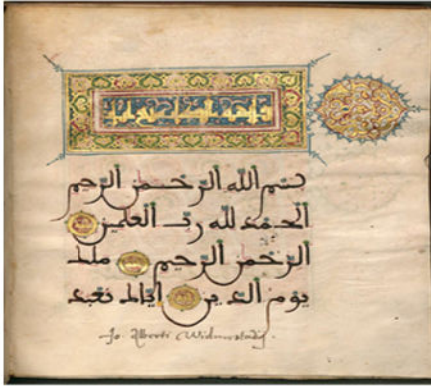 فاتحة الكتاب سبع آيات
بسم الله الرحمن الرحيم
الحمد لله رب العلمين
الرحمن الرحيم ملك
يوم الدين إياك نعبد
Jo. Alberti Widmestadij.